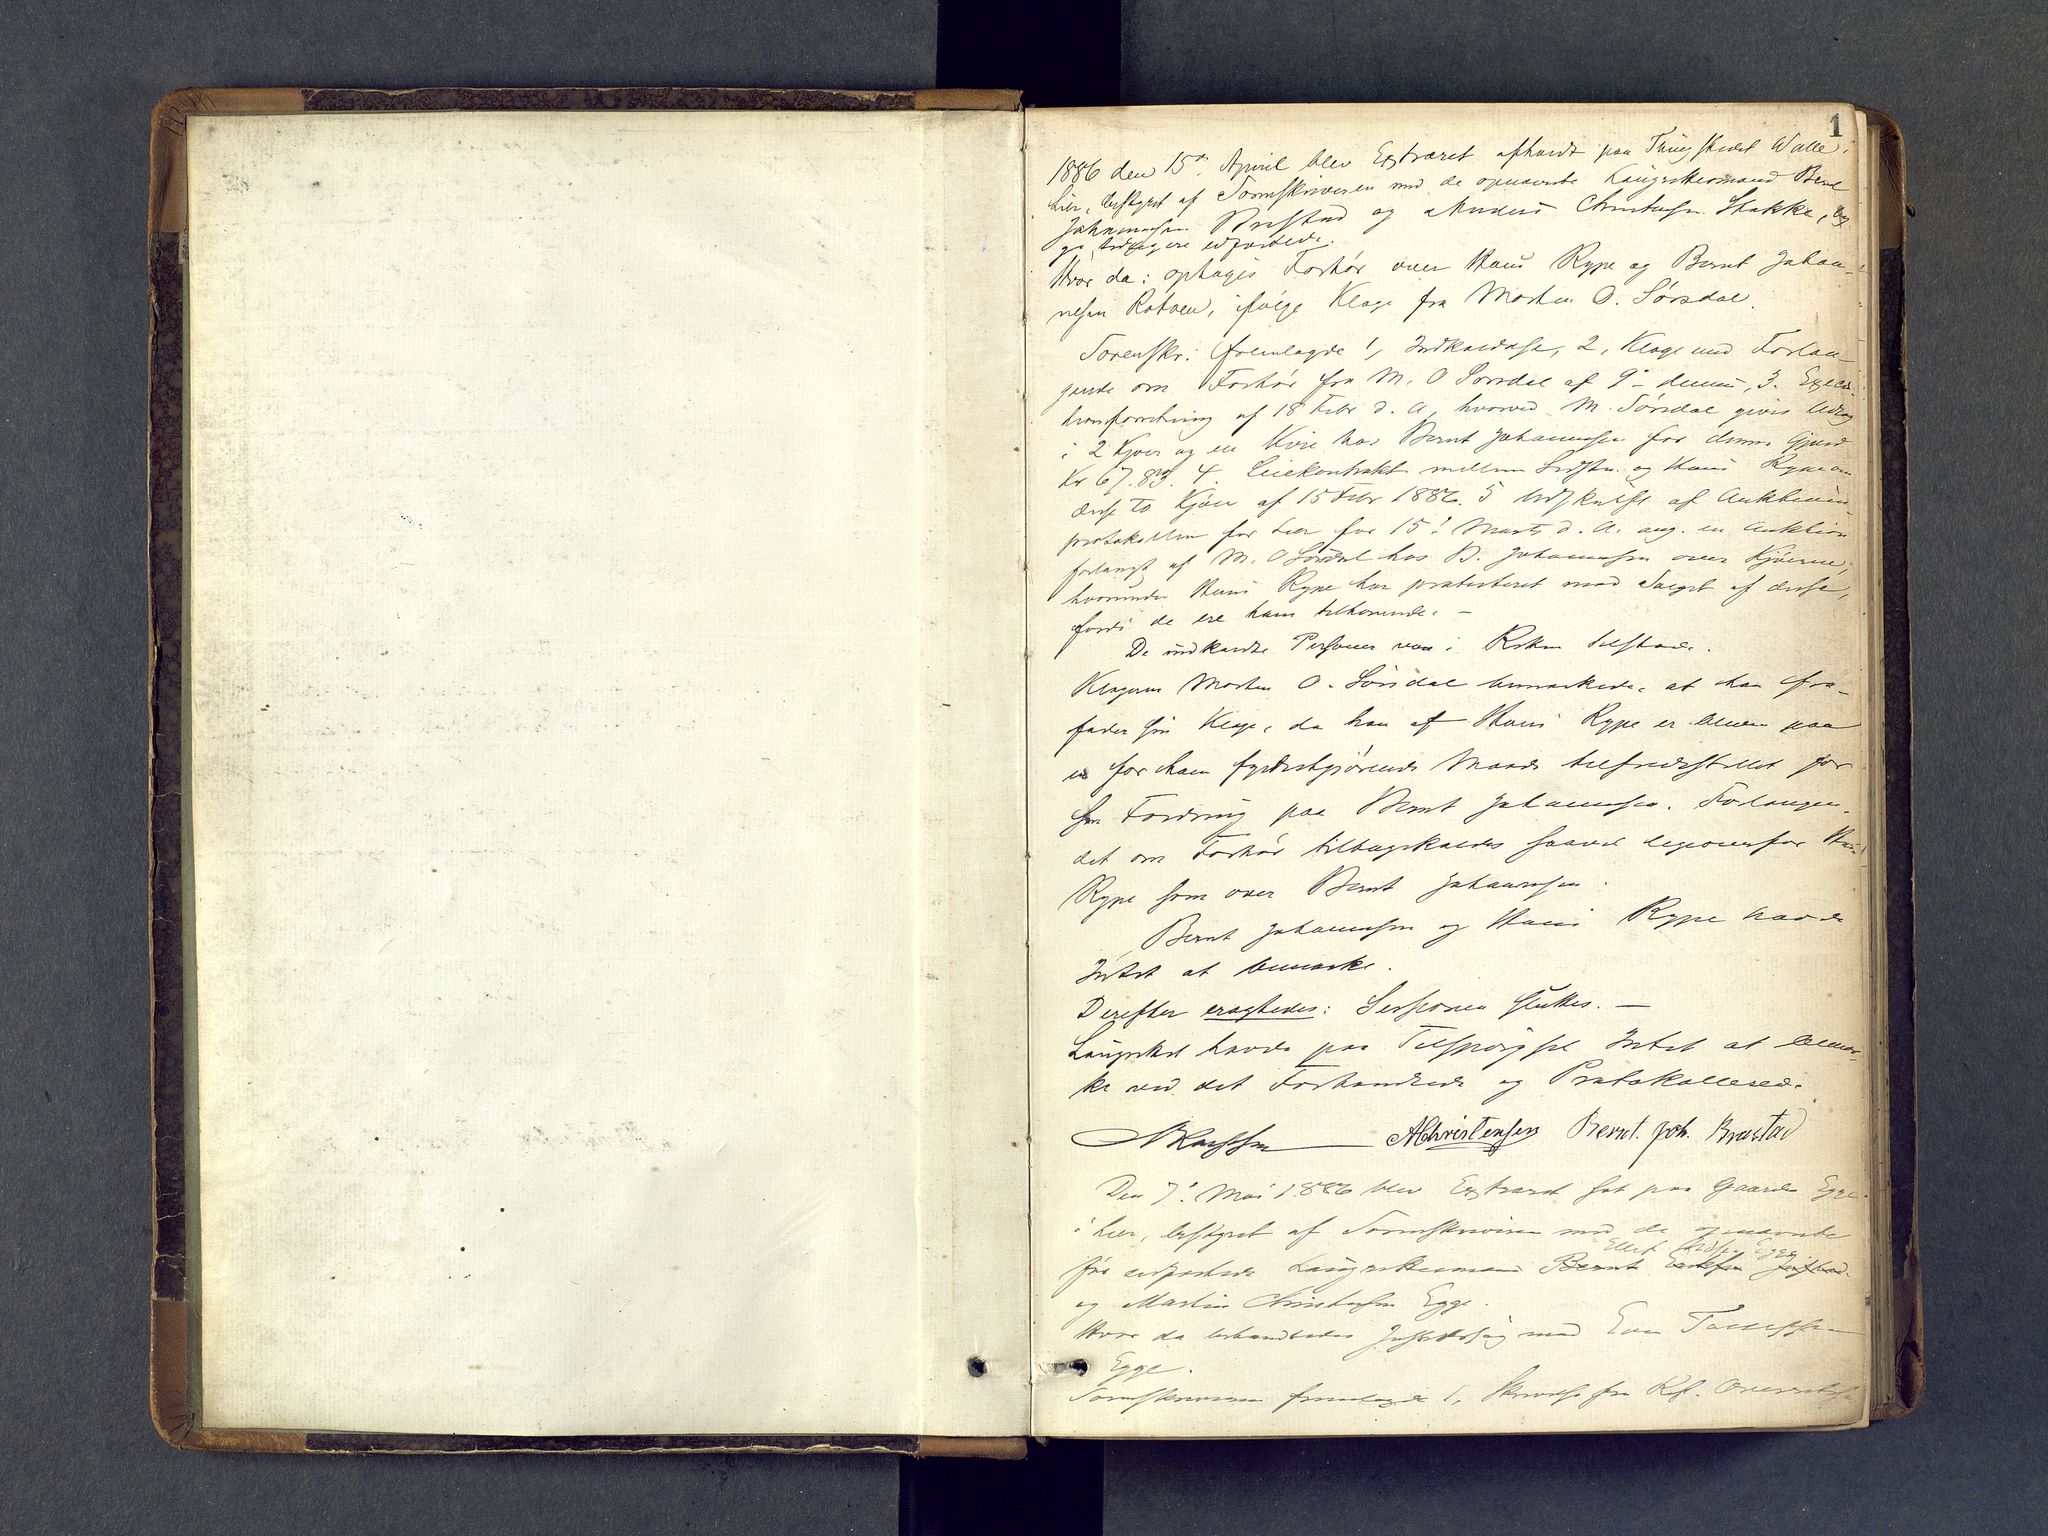 1
1886 den 15de April blev Extraret afholdt paa Thingstedet Valle i
Lier, bestyret af Sorenskriveren med de opnævnte Laugrettesmænd Bernt
Johannesen Brastad og Anders Christensen Stakke, beg-
ge tidligere edfæstede.
Hvor da: optages Forhør over Hans Rype og Bernt Johan-
nesen Rotven, ifølge Klage fra Morten O. Sørsdal.
Sorenskr. fremlagde 1, Indkaldelse, 2, Klage med Forlan-
gende om Forhør fra M. O Sørsdal af 9de dennes, 3. Execu-
tionsforretning af 18 Febr d. A, hvorved M. Sørsdal gives Udlæg
i 2 Kjøer og en Kvie hos Bernt Johannesen for dennes Gjæld
Kr 67.83. 4. Leiekontrakt mellem Sidstn. og Hans Rype om
disse to Kjøer af 15 Febr 1886. 5 Udskrift af Auktions-
protokollen for Lier for 15de Marts d. A. ang. en Auktion
forlangt af M. O Sørsdal hos B. Johannesen over Kjøerne,
hvorunder Hans Rype har protesteret mod Salget af disse,
fordi de ere ham tilhørende. –
De indkaldte Personer var i Retten tilstede.
Klageren Morten O. Sørsdal bemærkede, at han fra-
falder sin Klage, da han af Hans Rype er bleven paa
en for ham fyldestgjørende Maade tilfredsstillet for
sin Fordring paa Bernt Johannesen. Forlangen-
det om Forhør tilbagekaldes saavel ligeoverfor Hans
Rype som over Bernt Johannesen.
Bernt Johannesen og Hans Rype havde
Intet at bemærke.
Derefter eragtedes: Sessionen sluttes. –
Laugrettet havde paa Tilspørgsel Intet at bemær-
ke ved det Forhandlede og Protokollerede.
AChristensen Bernt. Joh. Brastad
Den 7de Mai 1886 blev Extraret sat paa Gaarden Egge
i Lier, bestyret af Sorenskriveren med de opnævnte
Egge
før edfæstede Laugrettesmænd Bernt
og Martin Christensen Egge.
Hvor da behandledes Justitssag mod Even
Egge.
Sorenskriveren fremlagde 1, Skrivelse fra Kst.